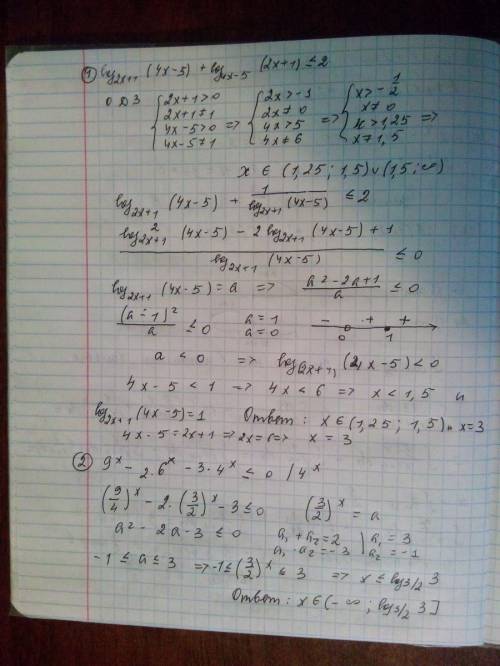 1) log₂ₓ₊₁ (4x-5) + log₄ₓ₋₅ (2x+1) ≤ 2
ОДЗ { 2x+1>0 ; 2x+1≠1 ; 4x-5>0 ; 4x-5≠1 => { 2x>-1 ; 2x≠0 ; 4x>5 ; 4x≠6 => { x>-1/2 ; x≠0 ; x>1,25 ; x≠1,5 =>
x ∈ (1,25; 1,5) ∪ (1,5; ∞)
log₂ₓ₊₁ (4x-5) + 1/(log₂ₓ₊₁ (4x-5)) ≤ 2
(log²₂ₓ₊₁ (4x-5) - 2 log₂ₓ₊₁ (4x-5) + 1)/(log₂ₓ₊₁ (4x-5)) ≤ 0
log₂ₓ₊₁ (4x-5) = a => (a²-2a+1)/a ≤ 0
(a-1)²/a ≤ 0 a=1 a=0 - + + 0 1
a < 0 => log₂ₓ₊₁ (4x-5) < 0
4x-5 < 1 => 4x < 6 => x < 1,5 и
log₂ₓ₊₁ (4x-5) = 1 Ответ: x ∈ (1,25; 1,5) и x=3
4x-5=2x+1 => 2x=6 => x = 3
2) 9ˣ - 2·6ˣ - 3·4ˣ ≤ 0 /4ˣ
(9/4)ˣ - 2·(3/2)ˣ - 3 ≤ 0 (3/2)ˣ = a
a² - 2a - 3 ≤ 0 a₁ + a₂ = 2 a₁·a₂ = -3 | a₁ = 3 a₂ = -1
-1 ≤ a ≤ 3 => -1 ≤ (3/2)ˣ ≤ 3 => x ≤ log3/2 3
Ответ: x ∈ (-∞; log3/2 3]